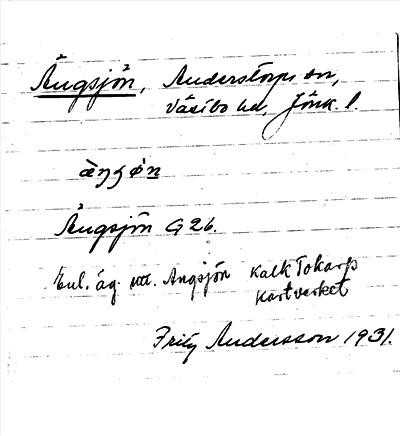 Ängsjön, Anderstorps sn,
Västbo hd, Jönk. l.
ä̀ŋʂø̀n
Ängsjön G26.
Enl. äg. utt. Angsjön Kalk Tokarp
Kartverket
Fritz Andersson 1931.